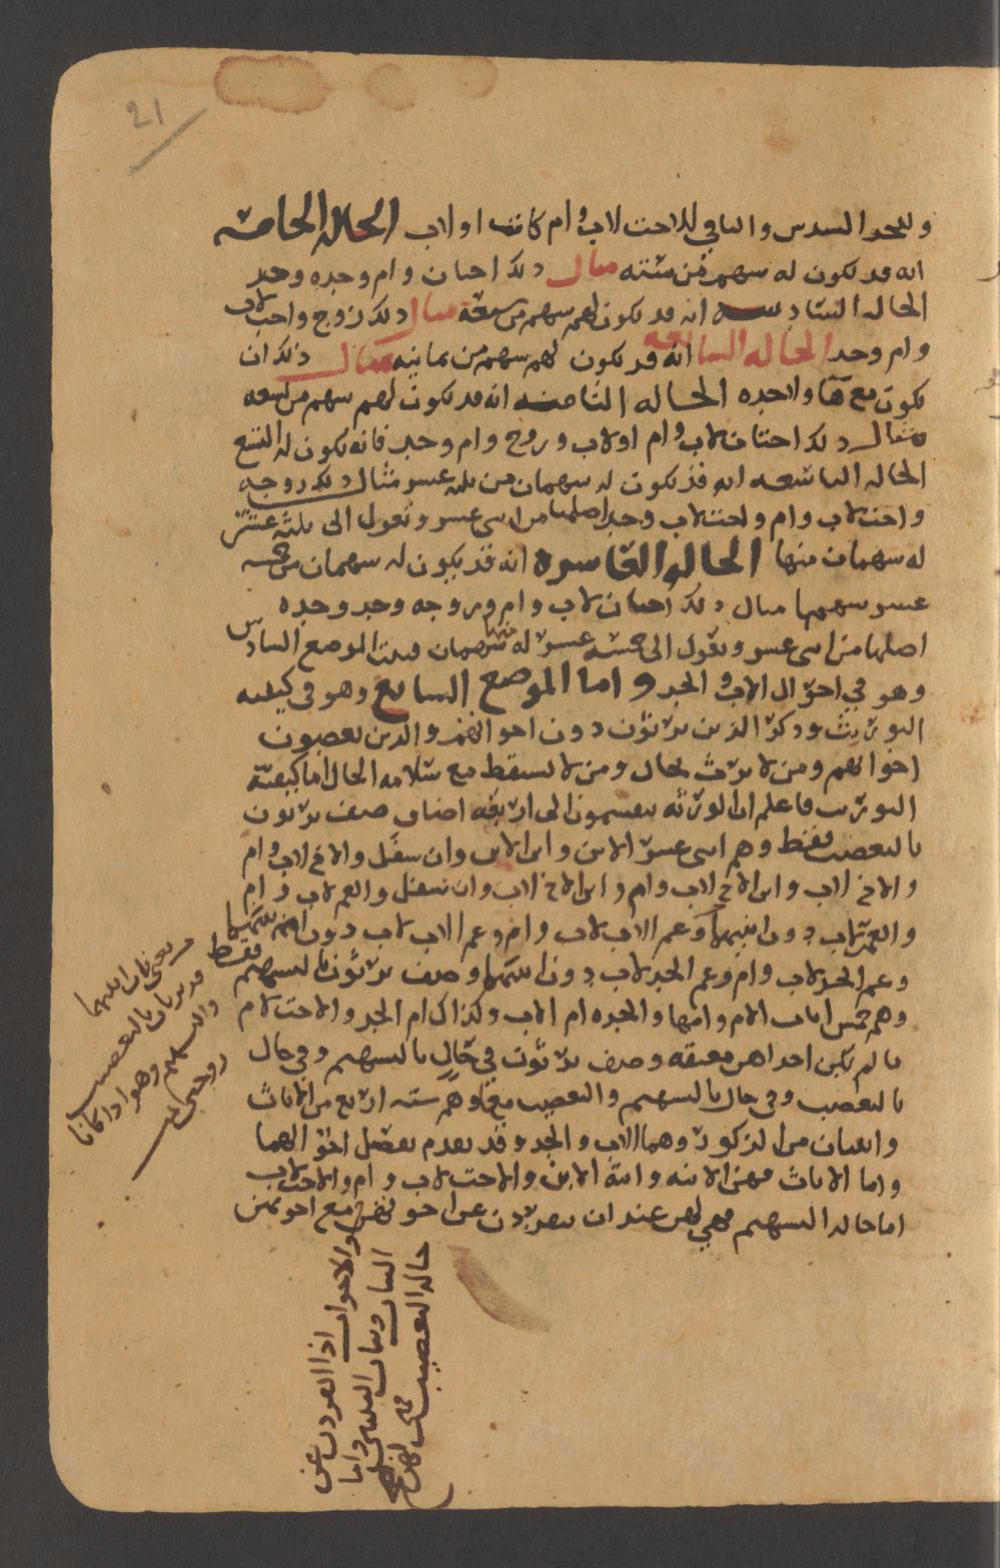 21
وللجد السدس والباقي للاخت لاب وام كانت او لاب الحاله الخامسه
انه قد تكون له سهم من سته مثال ذلك اختان وام وجده وجد
الحاله السادسه انه قد تكون لهم سهم من سبعة مثال ذلك زوج واخت لاب
وام وجد الحاله السابعه انه قد يكون لهم سهم من ثمانيه مثال ذلك ان
تكون مع هاولا جده الحاله الثامنه انه قد تكون لهم سهم من تسعه
مثال ذلك اختان لاب وام او لاب وزوج وام وجد فانه تكون له التسع
الحاله التاسعه انه قد يكون له سهمان من ثلثه عشر مثال ذلك زوجه
واخت لاب وام واخت لاب وجد اصلها من اثنى عشر وتعول الى ثلثة عشر
له سهمان منها الحاله العاشره انه قد يكون له سهمان من خمسه
عشر سهما مثال ذلك اختان لاب وام وزوجه وجد وجده
اصلها من اثنى عشر وتعول الى خمسة عشر له منها سهمان فهذا الموضع السادس
وهو في احوال الاب والجد واما الموضع السابع وهو في كيفيه
التوريث وذكر الذين يرثون دون اخواتهم والذين يعصبون
اخواتهم ومن لا يرث بحال ومن لا يسقط مع سلامه الحال اما كيفية
التوريث فاعلم ان الورثه ينقسمون الى اربعه اصناف صنف يرثون
بالتعصيب فقط وهم اثنى عشر الابن وابن الابن وان سفل والاخ لاب وام
والاخ لاب وابن الاخ لاب وام وابن الاخ لاب وان سفل والعم لاب وام
والعم لاب دون ابنيهما وعم الاب لاب وام وعم الاب لاب دون ابنيهما
وعم الجد لاب وام وعم الجد لاب دون ابنيهما وصنف يرثون بالسهم فقط
وهم خمس اناث الام وامها والجده ام الاب وكذلك ام الجد والاخت لام
ما لم تكن احداهن معتقه وصنف يرثون في حال بالسهم وفي حال
بالتعصيب وفي حال بالسهم والتعصيب معا وهم سته اربع من الاناث
واثنان من الذكور وهما الاب والجد وقد تقدم تفصيل احوالهما
واما الاناث فهن الابنه وابنة الابن والاخت لاب وام والاخت لاب
اما حاله السهم فهي لهن عند ان ينفردن عن اخوتهن مع اخوتهن
والاخوات اذا انفردن عن
البنات وبنات البنين واما
حاله التعصيب فهي لهن مع